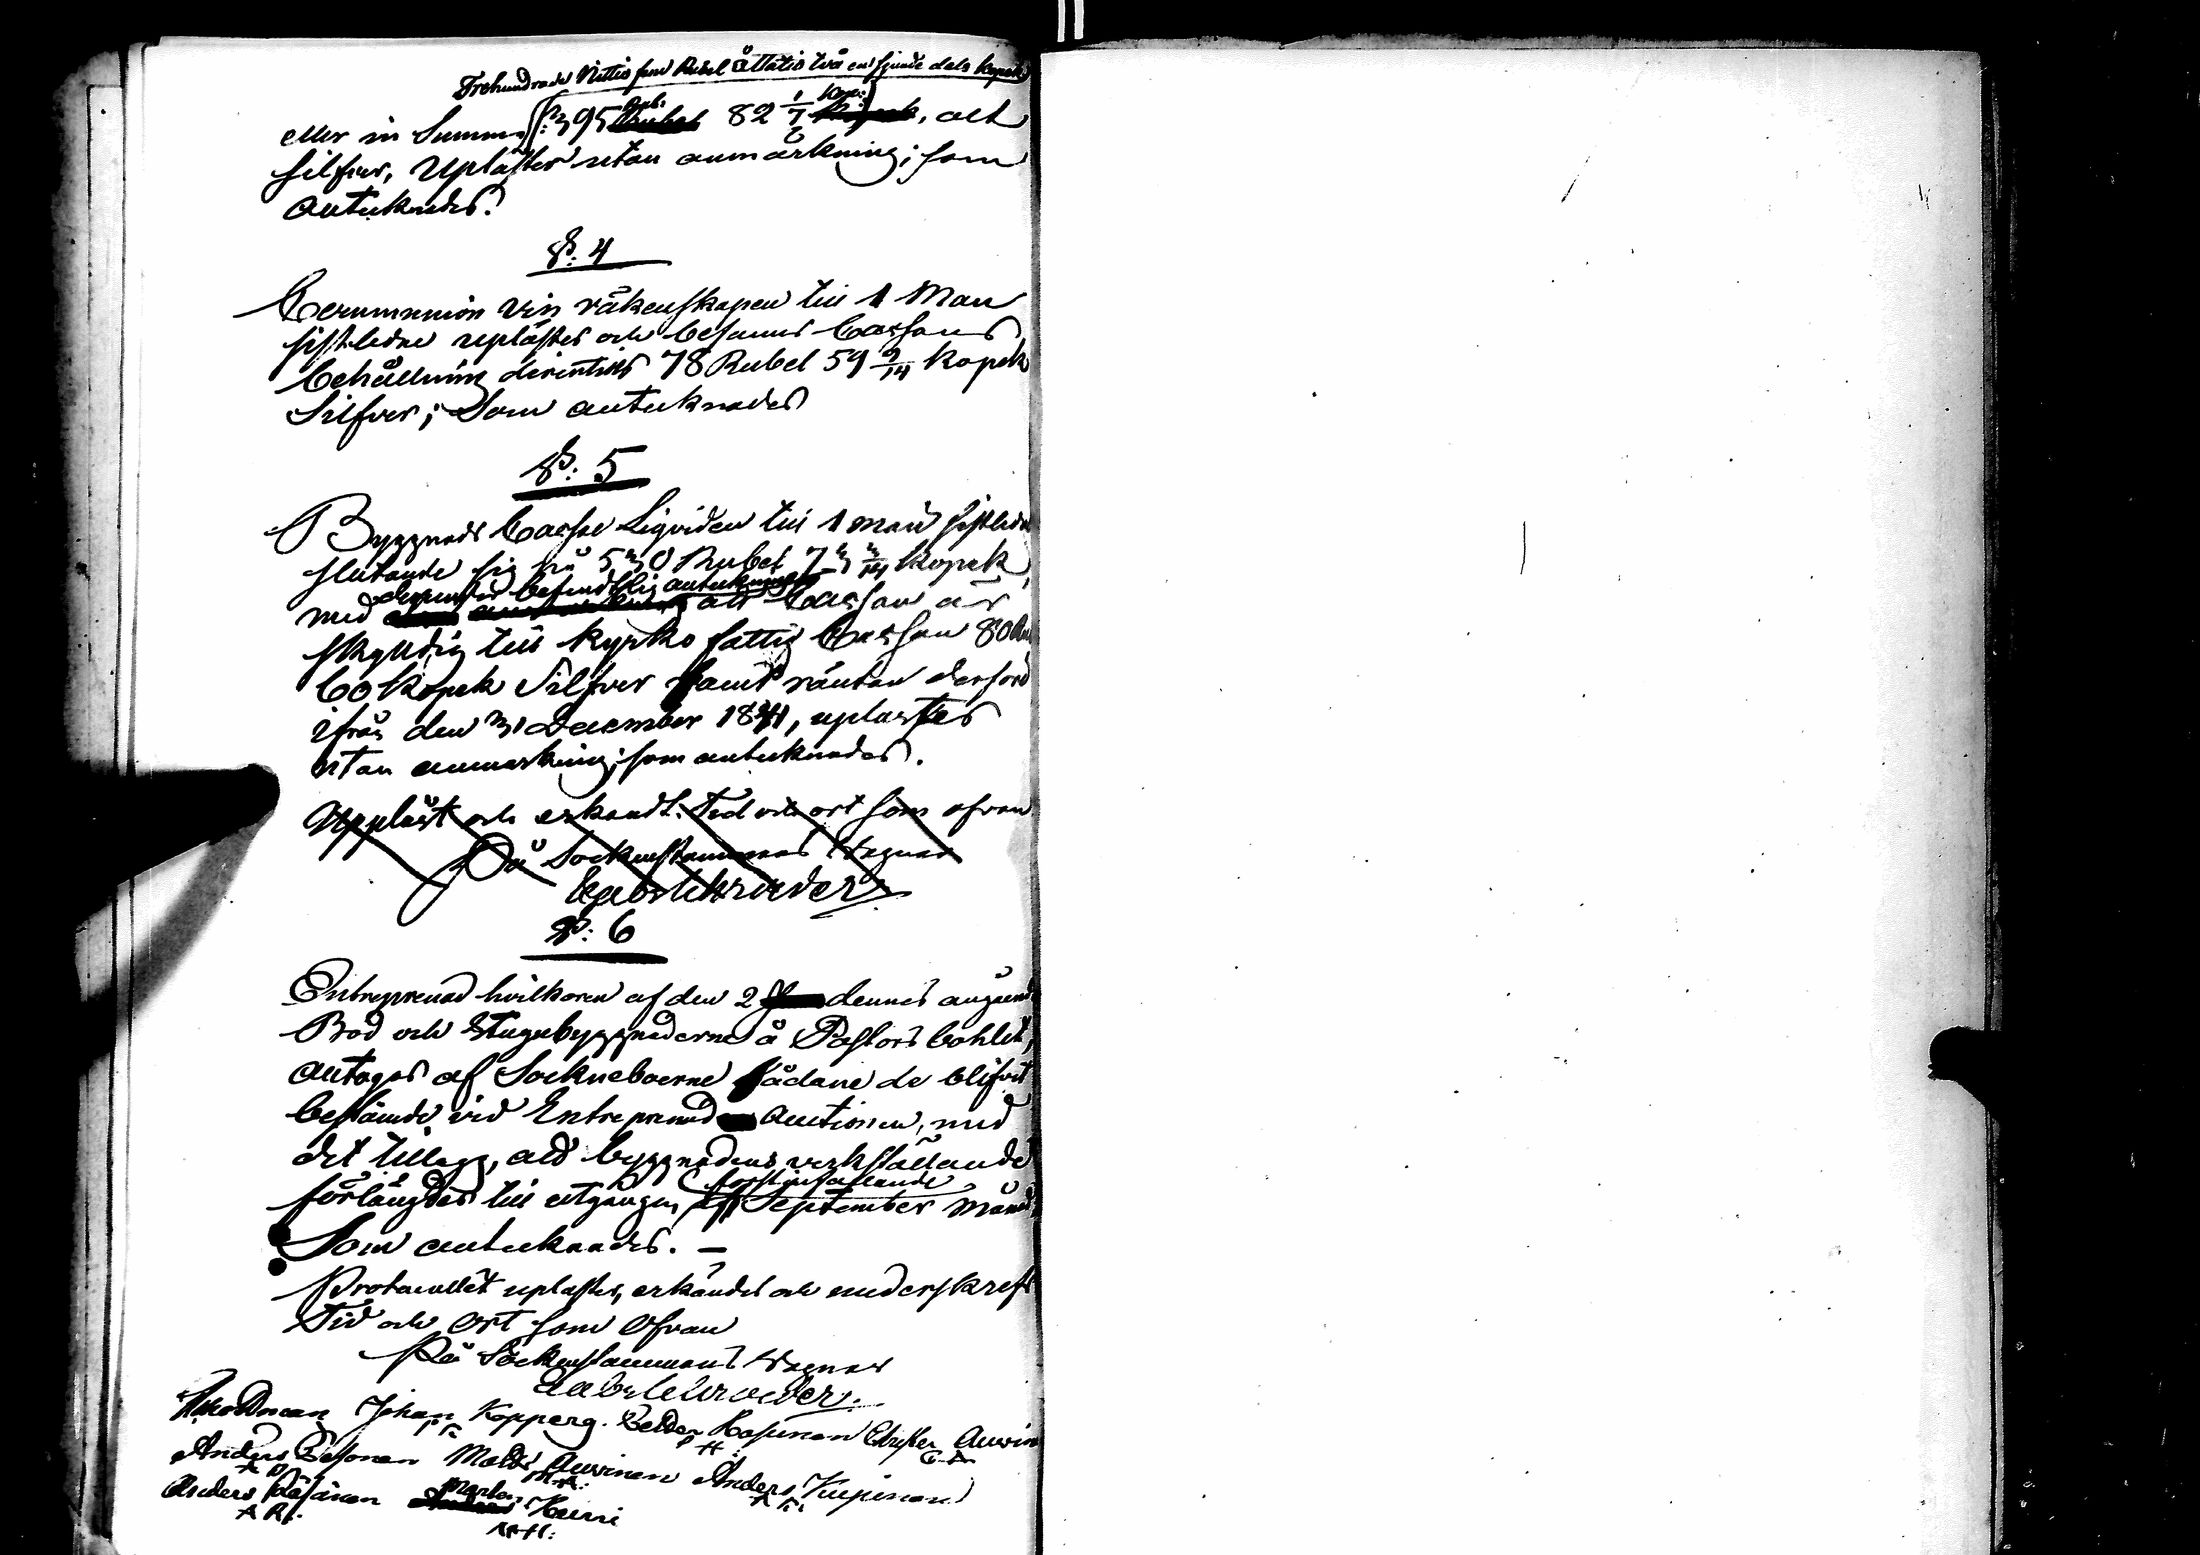 Trehundrade Nittio fem Rubel åttatio två en sjunde dels kopek
eller in Summa (: 395 Rub. 82 1/7 Kop:), alt
silfver, Uplästes utan anmärkning; som
antecknades.
§: 4
Communion vin räkenskapen till 1 Maii
sistledne uplästes och befanns Cassans
behållning 78 Rubel 59 9/14 Kopek
Silfver; Som antecknades
§: 5
Byggnads Cassae Liqviden till 1 Maii sistledne
slutande sig på 530 Rubel 73 3/14 Kopek,
med derunder befindtlig anteckning att Cassan är
skyldig till kyrko fattig Cassan 80 Rub
60 Kopek Silfver samt räntan derförd
ifrån den 31 December 1841, uplästes
utan anmärkning; som antecknades.
Uppläst och erkändt. Tid och ort som ofvan
På Sockenstämmans Vägnar
§: 6
Entreprenad vilkoren af den 2 dennes angående
Bod och Stugubyggnaderne å Pastors bohlet,
antogos af Sockneboerne sådane de blifvit
bestämde vid Entreprenad Auctionen, med
det tillägg, att byggnadens verkställande
förlängdes till utgången af förstinfallande September Månad,
Som antecknades. —
Protocollet uplästes, erkändes och underskrefs
Tid och Ort som Ofvan
På Sockenstämmans Vägnar
Johan Kopperg. Hosunen Christer Auvin
Anders Matts Auvinen Anders
M. A.
Anders Räsänen Harri
A R.